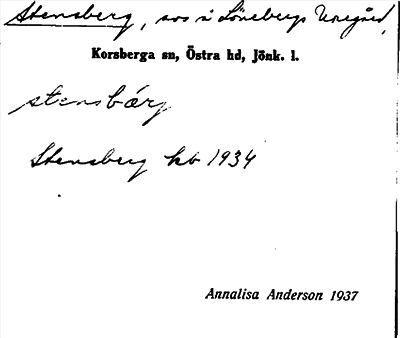 Stensberg, sos i Lönebergs Norrgård,
Korsberga sn, Östra hd, Jönk. l.
stensbärj
Stensberg kb 1934
Annalisa Anderson 1937